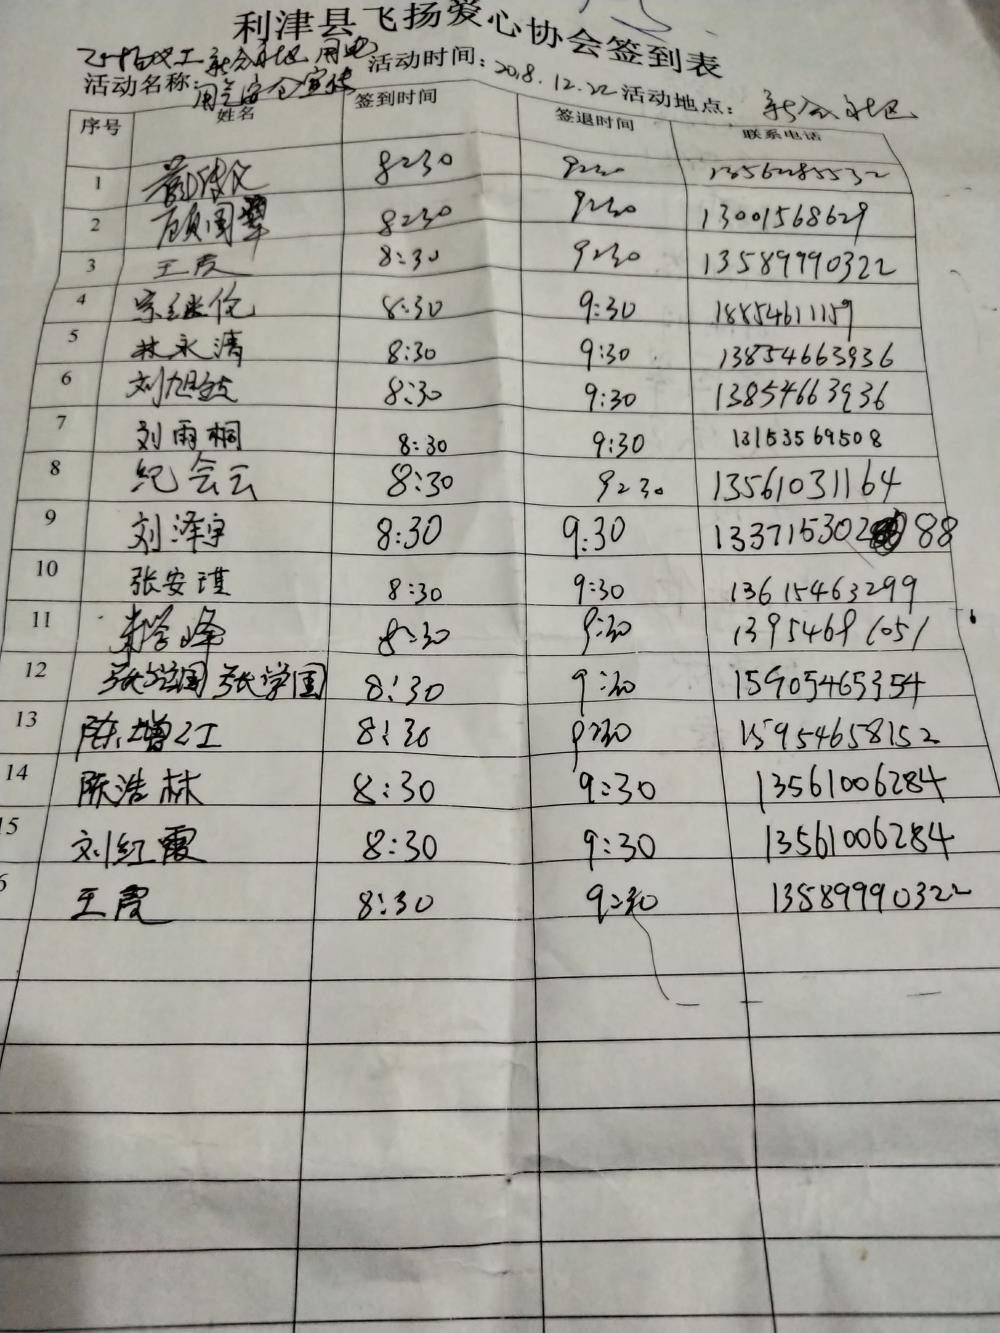 利津县飞扬爱心协会签到表
社区 用电
活动名称: 用气安全宣传 活动时间: 2018.12.22 活动地点: 社区
序号 姓名 签到时间 签退时间 联系电话
1 8:30 9:30 13562285532
2 顾国翠 8:30 9:30 13001568629
3 王霞 8:30 9:30 13589990322
4 宗继伦 8:30 9:30 18854611159
5 林永清 8:30 9:30 13854663936
6 刘旭 8:30 9:30 13854663936
7 刘雨桐 8:30 9:30 13153569508
8 纪会云 8:30 9:30 13561031164
9 刘泽宇 8:30 9:30 133715302 88
10 张安琪 8:30 9:30 13615463299
11 学峰 8:30 9:30 13954691051
12 张学国 张学国 8:30 9:30 15905465354
13 陈增江 8:30 9:30 15954658152
14 陈浩林 8:30 9:30 13561006284
15 刘红霞 8:30 9:30 13561006284
6 王霞 8:30 9:30 13589990322